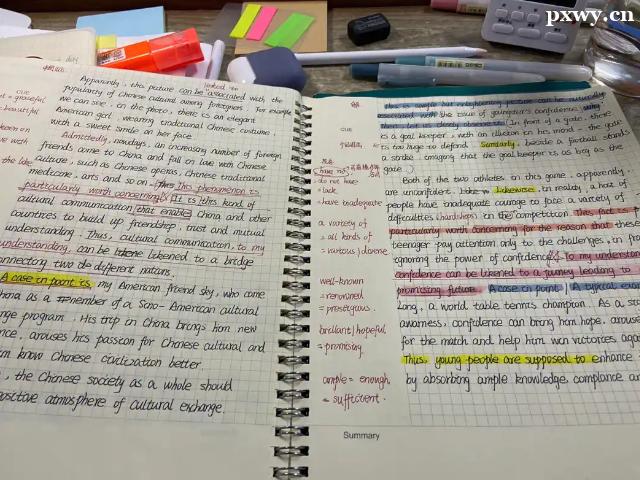 pxwy.cn
linked to
Apparently, this picture can be associated with the
popularity of Chinese cultural among foreigners. For example
we can see, in the photo, there is an elegant
American girl, wearing traditional Chinese costume
with a sweet smile on her face.
Admittedly, nowadays, an increasing number of foreign
friends come to China and fall in love with Chinese
culture, such as Chinese operas, Chinese traditional
medicine, arts and so on. This phenomenon is
particularly worth concerning. It is this kind of
cultural communication that enables China and other
countries to build up friendship, trust and mutual
understanding. Thus, cultural communication, to my
understanding, can be likened to a bridge
connecting two different nations.
A case in point is, my American friend Sky, who came
China as a member of a Sino-American cultural
program. His trip in China brings him new
arouses his passion for Chinese cultural and
know Chinese civilization better.
, the Chinese society as a whole should
positive atmosphere of cultural exchange.
cue
= graceful
beautiful
cue
have no
do not have
= lack
= have inadequate
a variety of
= all kinds of
= various / diverse
well-known
= renowned
= prestigious.
brilliant / hopeful
= promising
ample = enough
= sufficient.
associated with the issue of youngster's confidence.
In front of a gate, there
is a goal keeper, with an illusion in his mind - the goal
is too huge to defend. Similarly, beside a football stands
a strike, imagining that the goal keeper is as big as the
gate.
Both of the two athletes in this game, apparently,
are unconfident. Likewise, in reality, a host of
people have inadequate courage to face a variety of
difficulties (hardships) in the competition. This fact is
particularly worth concerning for the reason that these
teenager pay attention only to the challenges, in fa
ignoring the power of confidence. To my understand
confidence can be likened to a journey leading to
promising future. A case in point / A typical exam
Long, a world table tennis champion. As a s
awareness, confidence can bring him hope, arouse
for the match and help him win victories agai
Thus, young people are supposed to enhance
by absorbing ample knowledge, compliance an
Summary